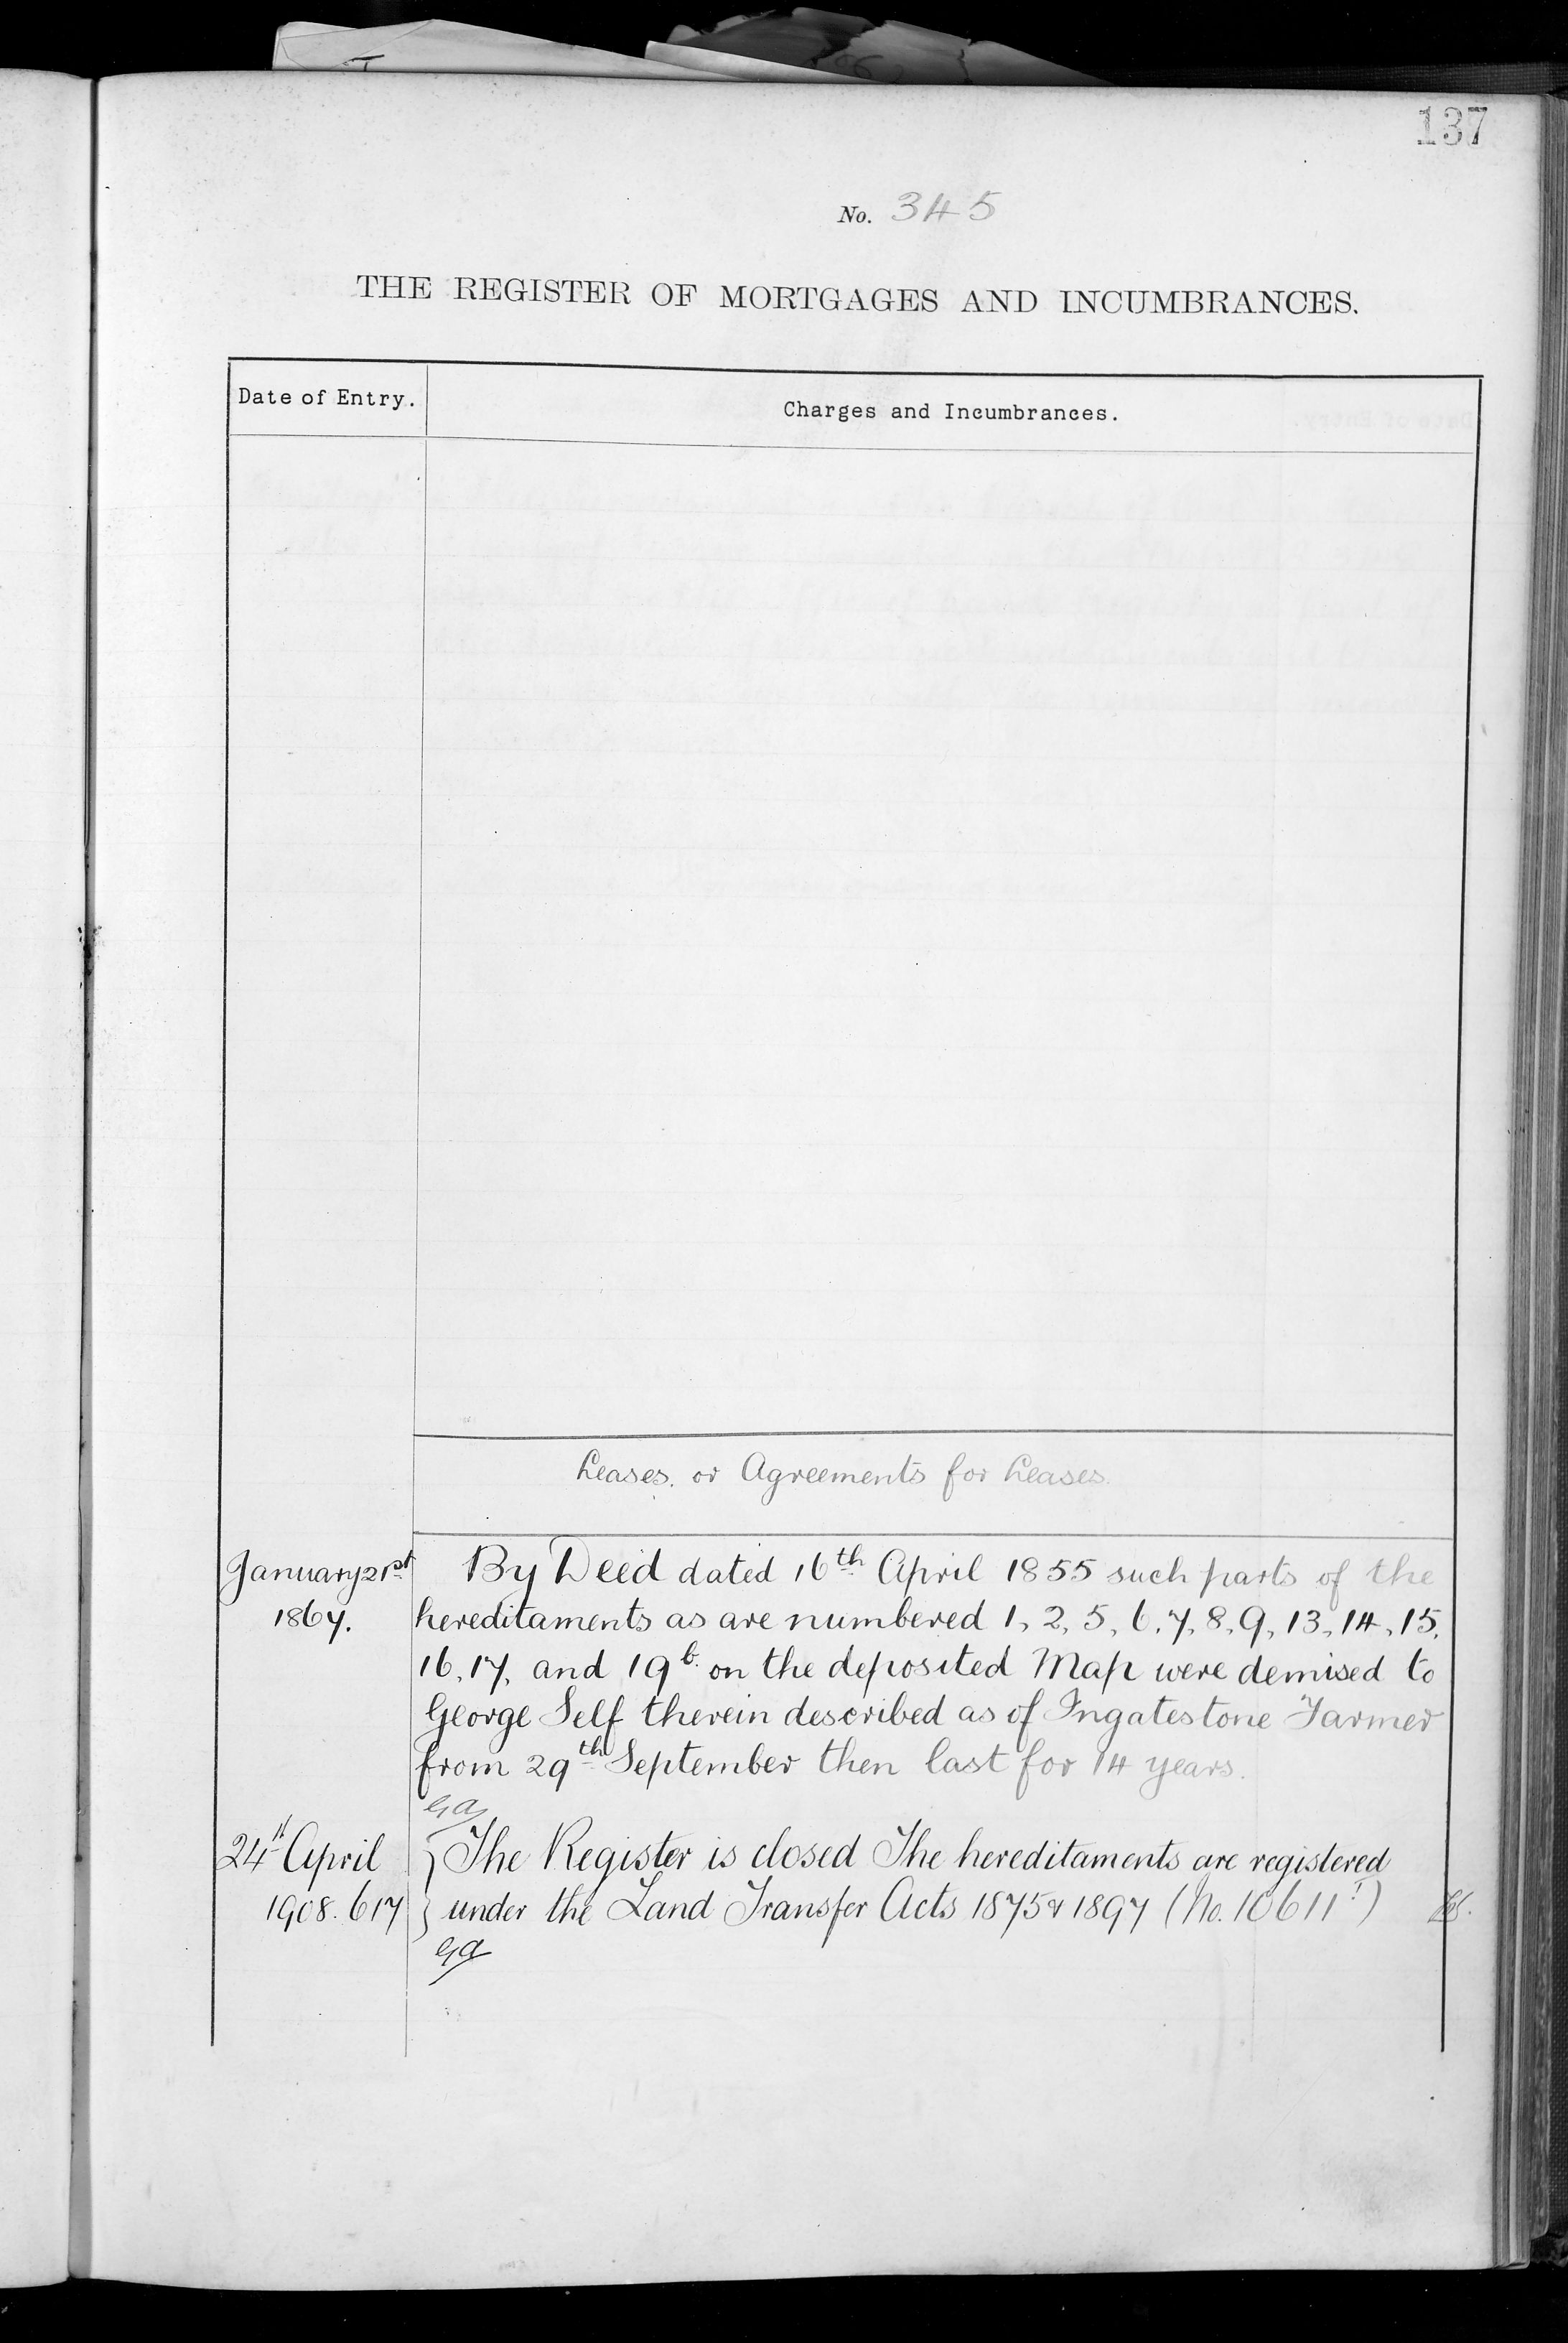 137
No. 345
THE REGISTER OF MORTGAGES AND INCUMBRANCES.
Date of Entry.
Charges and Incumbrances.
Leases. or Agreements for Leases.
January 21st 1867.
By Deed dated 16th April 1855 such parts of the
hereditaments as are numbered 1, 2, 5, 6, 7, 8, 9, 13, 14, 15,
16, 17, and 19b on the deposited Map were demised to
George Self therein described as of Ingatestone Farmer
from 29th September then last for 14 years.
GA
24th April
1908. 617
The Register is closed The hereditaments are registered
under the Land Transfer Acts 1875 & 1897 (No. 10611)
GA